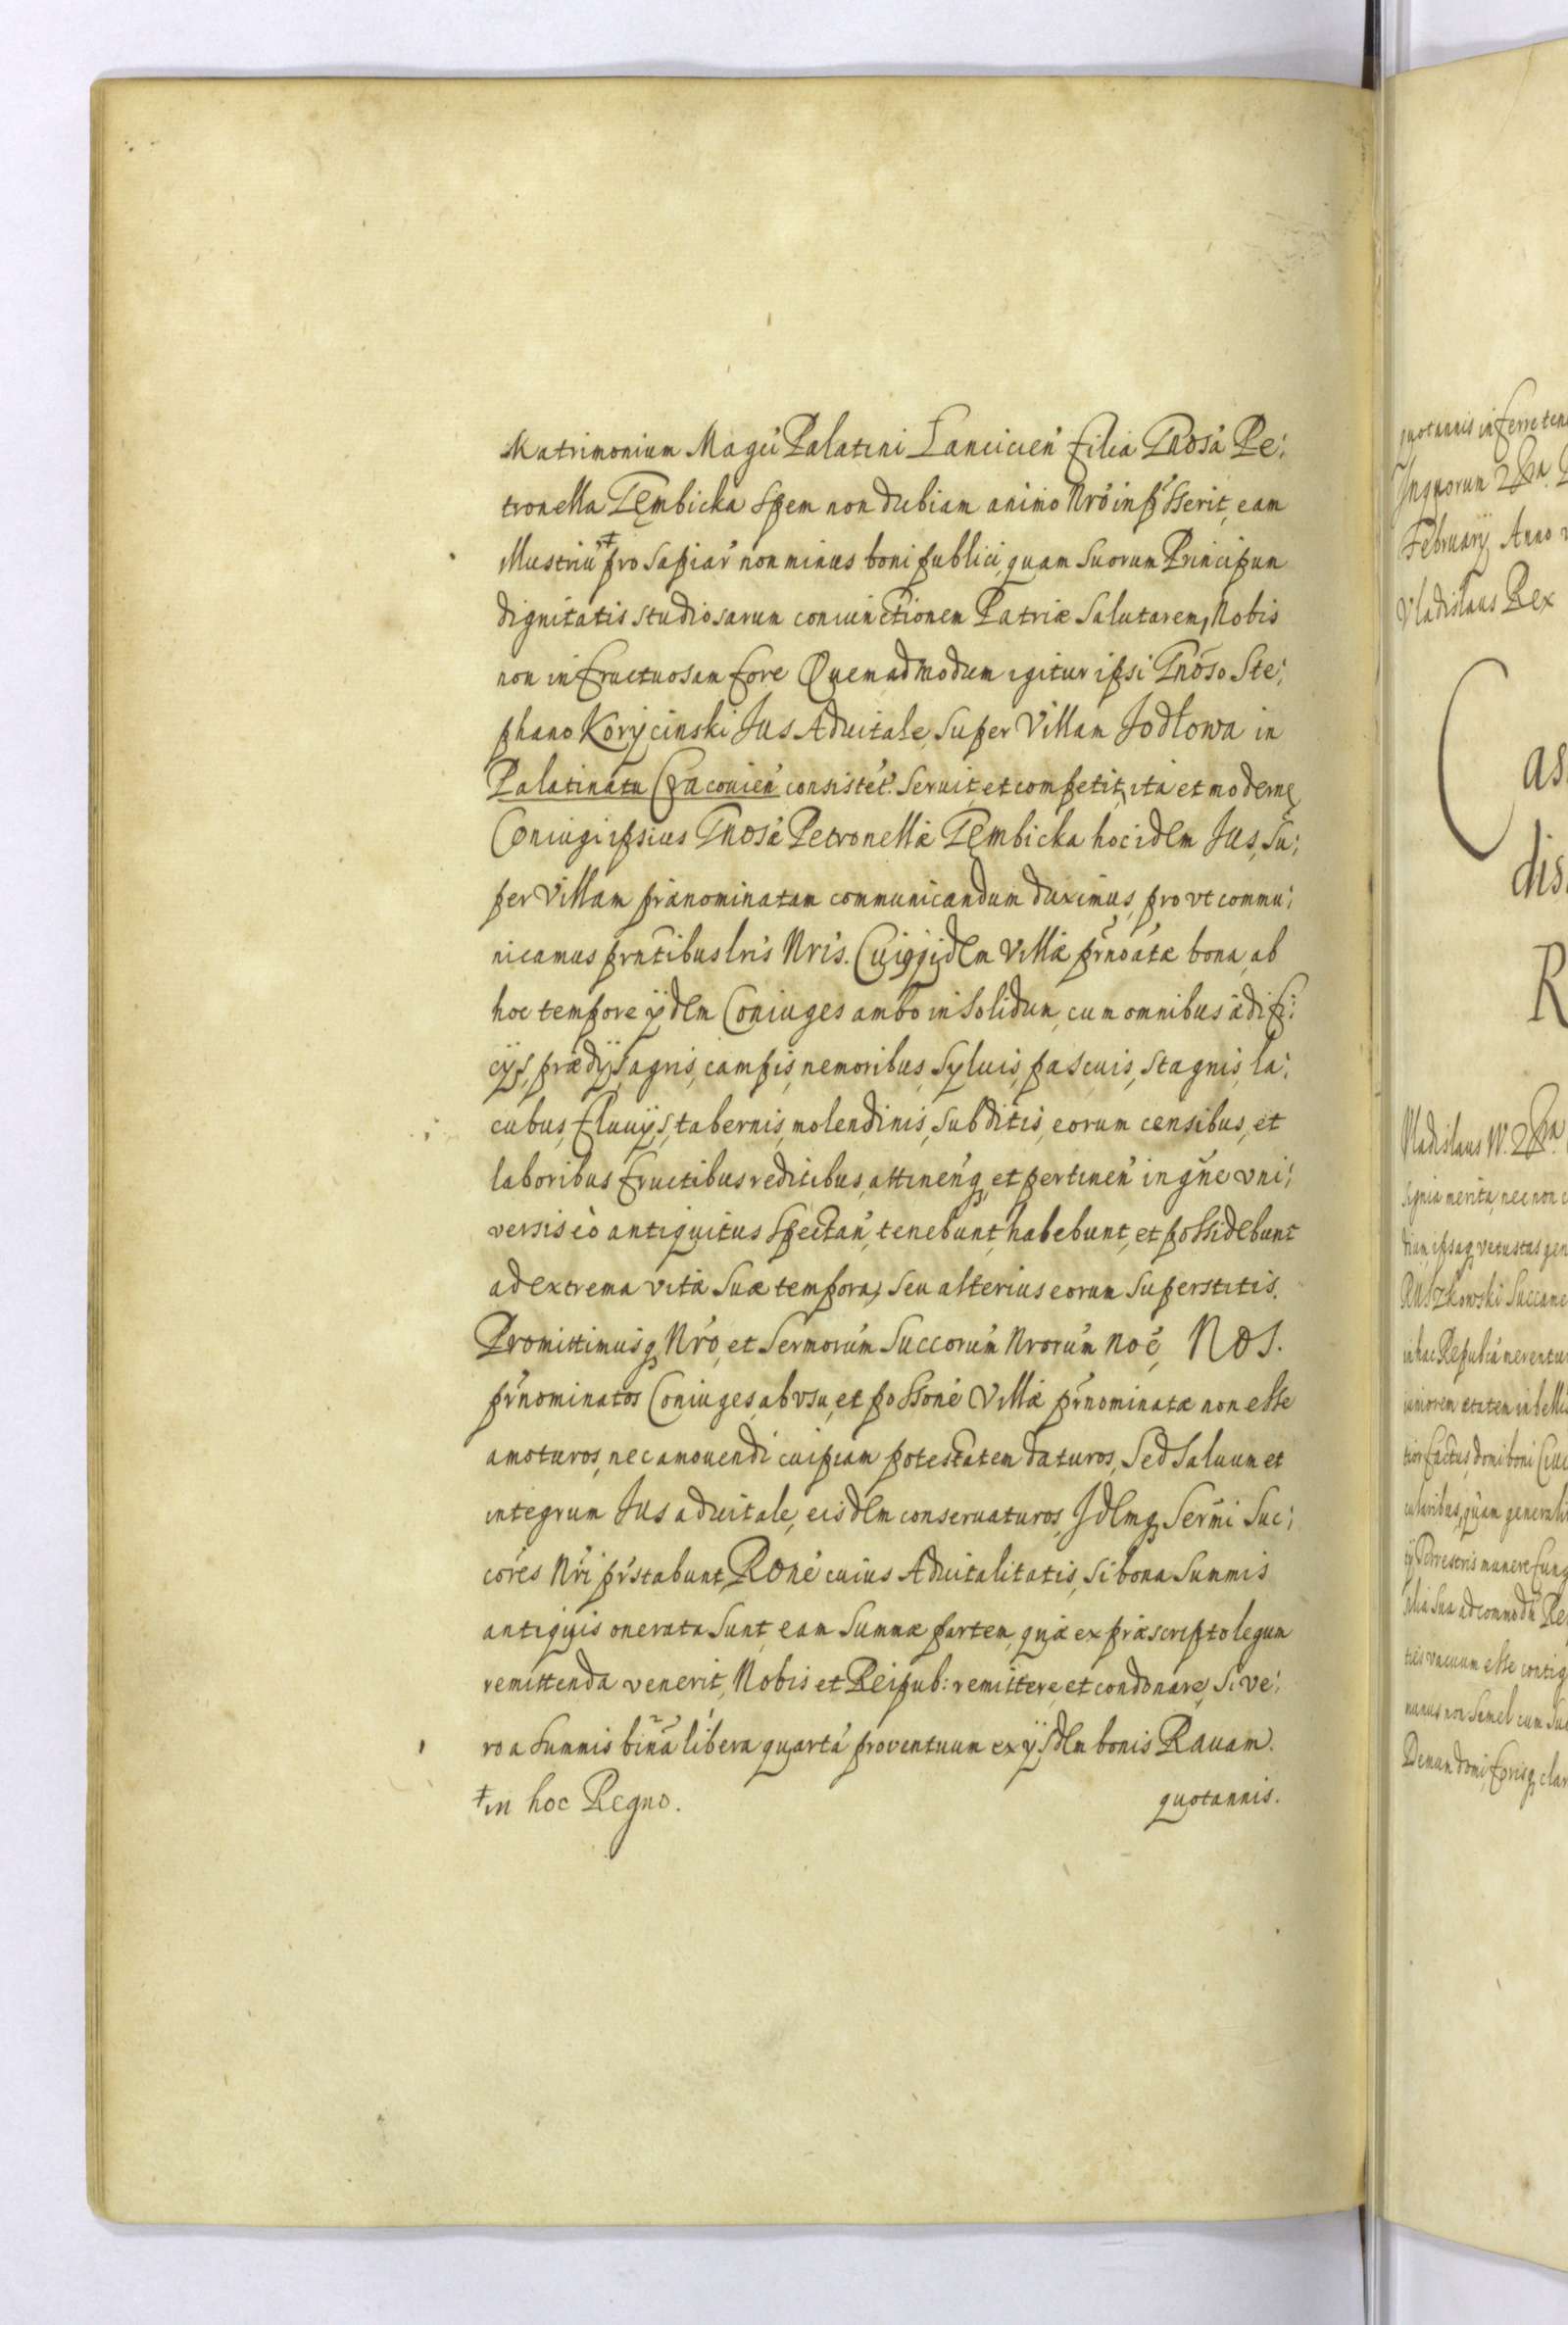 Matrimonium Magci Palatini Lancicien̄ filia Gnosa Pe:
tronella Gęmbicka spem non dubiam animo Nro inp̄sserit, eam
Illustriū ‡ prosapiar̄ non minus boni publici, quam suorum Principum
dignitatis studiosarum coniunctionem Patriæ salutarem, Nobis
non infructuosam fore Quemadmodum igitur ipsi Gnoso Ste:
phano Korycinski Jus Aduitale, super Villam Jodłowa in
Palatinatu Cracouien̄ consisteǹ. seruit, et competit, ita et modernę
Coniugi ipsius Gnosæ Petronellæ Gęmbicka hoc idem Jus, su:
per Villam prænominatam communicandum duximus, pro vt commu:
nicamus prntibus lris Nris. Cuiqq̨ idem Villæ prnoatæ bona, ab
hoc tempore ijdem Coniuges ambo in solidum, cum omnibus ædifi:
cijs, prædijs, agris, campis, nemoribus, syluis, pascuis, stagnis, la:
cubus, fluuijs, tabernis, molendinis, subditis, eorum censibus, et
laboribus fructibus reditibus, attinen̄q̨, et pertinen̄ in gn̄e vni:
versis eò antiquitus spectan̄, tenebunt, habebunt, et possidebunt
ad extrema vitæ suæ tempora, seu alterius eorum superstitis.
Promittimusq̨ Nro, et Sermorum Succorum Nrorum noe, NOS.
prnominatos Coniuges, ab vsu, et possone Villæ prnominatæ non esse
amoturos, nec amouendi cuipiam potestatem daturos, Sed saluum et
integrum Jus aduitale, eisdem conseruaturos, Idemq̨ Sermi Suc:
cores Nri prstabunt, Rone cuius Aduitalitatis, si bona summis
antiquis onerata sunt, eam summæ partem, quæ ex præscripto legum
remittenda venerit, Nobis et Reipub: remittere, et condonare, Si ve:
ro a summis bina libera quartā proventuum ex ijsdem bonis Rauam.
‡in hoc Regno. quotannis.
quotannis inferre ten
February Anno
Vladislaus Rex
C
as
dis
R
Vladislaus IV.
signia merita, nec non
dium, ipsaq̨ vetustas gen
Ruszkowski
in hac
iuniorem ætatem in belli
tior factus, domi boni Ciui
quam generali
Terrestris munere fung
ties vacuum esse contig
munus non semel cum
Demum domi, forisq̨ clar